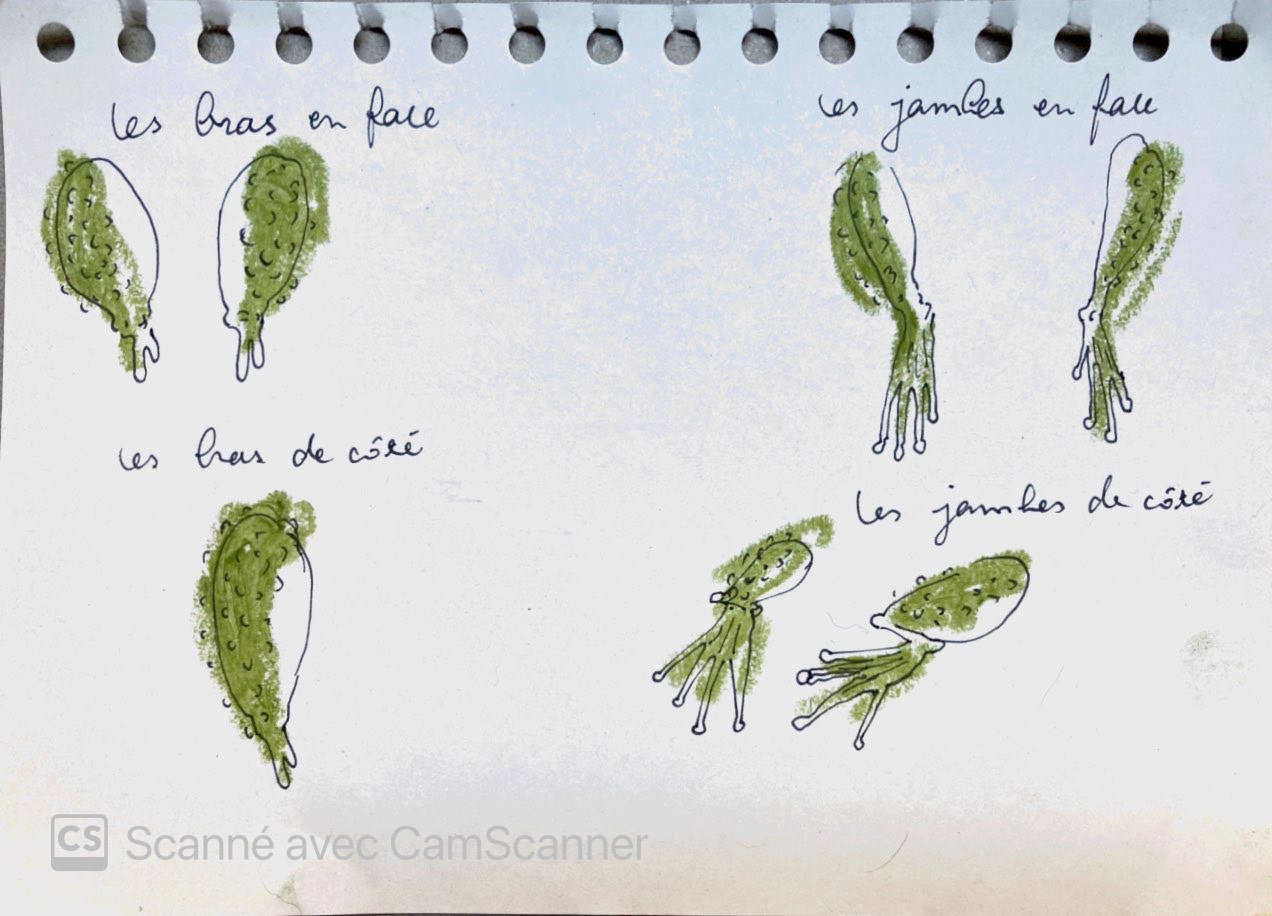 les bras en face
les jambes en face
les bras de côté
les jambes de côté
CS Scanné avec CamScanner